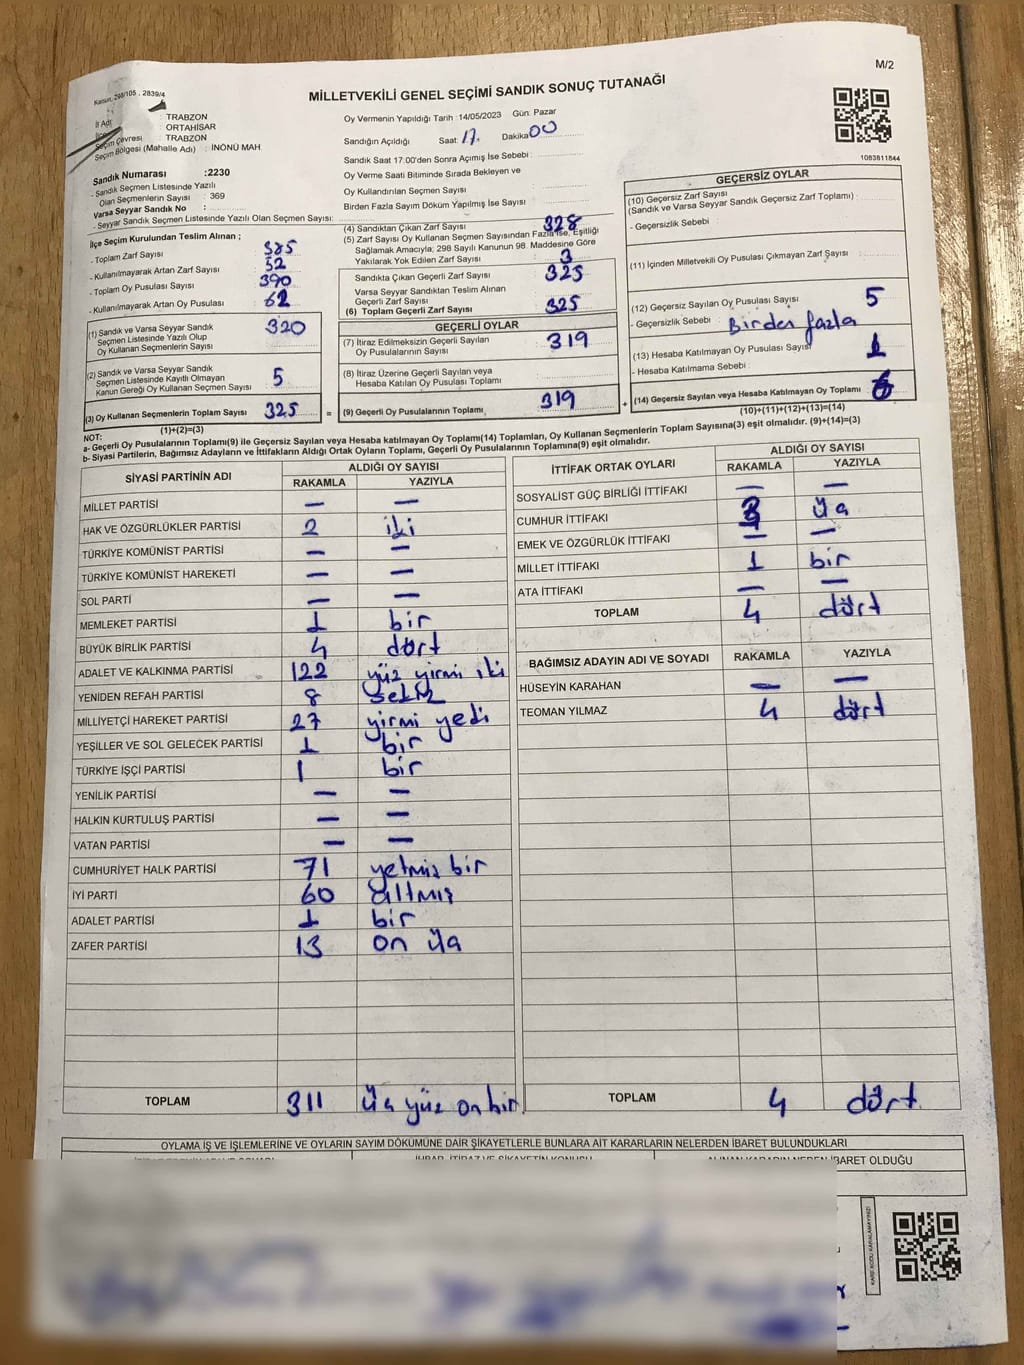 M/2
Kanun, 298/105 . 2839/4
MİLLETVEKİLİ GENEL SEÇİMİ SANDIK SONUÇ TUTANAĞI
İl Adı TRABZON
ORTAHİSAR
Seçim Çevresi : TRABZON
Seçim Bölgesi (Mahalle Adı) : İNÖNÜ MAH.
Sandık Numarası :2230
- Sandık Seçmen Listesinde Yazılı
Olan Seçmenlerin Sayısı : 369
Varsa Seyyar Sandık No :
- Seyyar Sandık Seçmen Listesinde Yazılı Olan Seçmen Sayısı:
Oy Vermenin Yapıldığı Tarih : 14/05/2023 Gün: Pazar
Sandığın Açıldığı Saat: 17. Dakika 00
Sandık Saat 17:00'den Sonra Açımış İse Sebebi :
Oy Verme Saati Bitiminde Sırada Bekleyen ve
Oy Kullandırılan Seçmen Sayısı
Birden Fazla Sayım Döküm Yapılmış İse Sayısı
1083811844
İlçe Seçim Kurulundan Teslim Alınan ;
- Toplam Zarf Sayısı 385
- Kullanılmayarak Artan Zarf Sayısı 52
- Toplam Oy Pusulası Sayısı 390
- Kullanılmayarak Artan Oy Pusulası : 62
(1) Sandık ve Varsa Seyyar Sandık
Seçmen Listesinde Yazılı Olup
Oy Kullanan Seçmenlerin Sayısı 320
(2) Sandık ve Varsa Seyyar Sandık
Seçmen Listesinde Kayıtlı Olmayan
Kanun Gereği Oy Kullanan Seçmen Sayısı 5
(3) Oy Kullanan Seçmenlerin Toplam Sayısı 325 =
(1)+(2)=(3)
(4) Sandıktan Çıkan Zarf Sayısı 328
(5) Zarf Sayısı Oy Kullanan Seçmen Sayısından Fazla ise, Eşitliği
Sağlamak Amacıyla; 298 Sayılı Kanunun 98. Maddesine Göre
Yakılarak Yok Edilen Zarf Sayısı : 3
Sandıkta Çıkan Geçerli Zarf Sayısı 325
Varsa Seyyar Sandıktan Teslim Alınan
Geçerli Zarf Sayısı
(6) Toplam Geçerli Zarf Sayısı 325
GEÇERLİ OYLAR
(7) İtiraz Edilmeksizin Geçerli Sayılan
Oy Pusulalarının Sayısı 319
(8) İtiraz Üzerine Geçerli Sayılan veya
Hesaba Katılan Oy Pusulası Toplamı
(9) Geçerli Oy Pusulalarının Toplamı 319 +
GEÇERSİZ OYLAR
(10) Geçersiz Zarf Sayısı
(Sandık ve Varsa Seyyar Sandık Geçersiz Zarf Toplamı) :
- Geçersizlik Sebebi :
(11) İçinden Milletvekili Oy Pusulası Çıkmayan Zarf Sayısı :
(12) Geçersiz Sayılan Oy Pusulası Sayısı 5
- Geçersizlik Sebebi : Birden fazla
(13) Hesaba Katılmayan Oy Pusulası Sayısı 1
- Hesaba Katılmama Sebebi :
(14) Geçersiz Sayılan veya Hesaba Katılmayan Oy Toplamı 6
(10)+(11)+(12)+(13)=(14)
NOT:
a- Geçerli Oy Pusulalarının Toplamı(9) ile Geçersiz Sayılan veya Hesaba katılmayan Oy Toplamı(14) Toplamları, Oy Kullanan Seçmenlerin Toplam Sayısına(3) eşit olmalıdır. (9)+(14)=(3)
b- Siyasi Partilerin, Bağımsız Adayların ve İttifakların Aldığı Ortak Oyların Toplamı, Geçerli Oy Pusulalarının Toplamına(9) eşit olmalıdır.
SİYASİ PARTİNİN ADI ALDIĞI OY SAYISI
RAKAMLA YAZIYLA
MİLLET PARTİSİ — —
HAK VE ÖZGÜRLÜKLER PARTİSİ 2 iki
TÜRKİYE KOMÜNİST PARTİSİ — —
TÜRKİYE KOMÜNİST HAREKETİ — —
SOL PARTİ — —
MEMLEKET PARTİSİ 1 bir
BÜYÜK BİRLİK PARTİSİ 4 dört
ADALET VE KALKINMA PARTİSİ 122 yüz yirmi iki
YENİDEN REFAH PARTİSİ 8 sekiz
MİLLİYETÇİ HAREKET PARTİSİ 27 yirmi yedi
YEŞİLLER VE SOL GELECEK PARTİSİ 1 bir
TÜRKİYE İŞÇİ PARTİSİ 1 bir
YENİLİK PARTİSİ — —
HALKIN KURTULUŞ PARTİSİ — —
VATAN PARTİSİ — —
CUMHURİYET HALK PARTİSİ 71 yetmiş bir
İYİ PARTİ 60 altmış
ADALET PARTİSİ 1 bir
ZAFER PARTİSİ 13 on üç
TOPLAM 311 üç yüz on bir
İTTİFAK ORTAK OYLARI ALDIĞI OY SAYISI
RAKAMLA YAZIYLA
SOSYALİST GÜÇ BİRLİĞİ İTTİFAKI — —
CUMHUR İTTİFAKI 3 üç
EMEK VE ÖZGÜRLÜK İTTİFAKI — —
MİLLET İTTİFAKI 1 bir
ATA İTTİFAKI — —
TOPLAM 4 dört
BAĞIMSIZ ADAYIN ADI VE SOYADI RAKAMLA YAZIYLA
HÜSEYİN KARAHAN — —
TEOMAN YILMAZ 4 dört
TOPLAM 4 dört
OYLAMA İŞ VE İŞLEMLERİNE VE OYLARIN SAYIM DÖKÜMÜNE DAİR ŞİKAYETLERLE BUNLARA AİT KARARLARIN NELERDEN İBARET BULUNDUKLARI
İHBAR, İTİRAZ VE ŞİKAYETİN KONUSU ALINAN KARARIN NEDEN İBARET OLDUĞU
KARE KODU KARALAMAYINIZ!